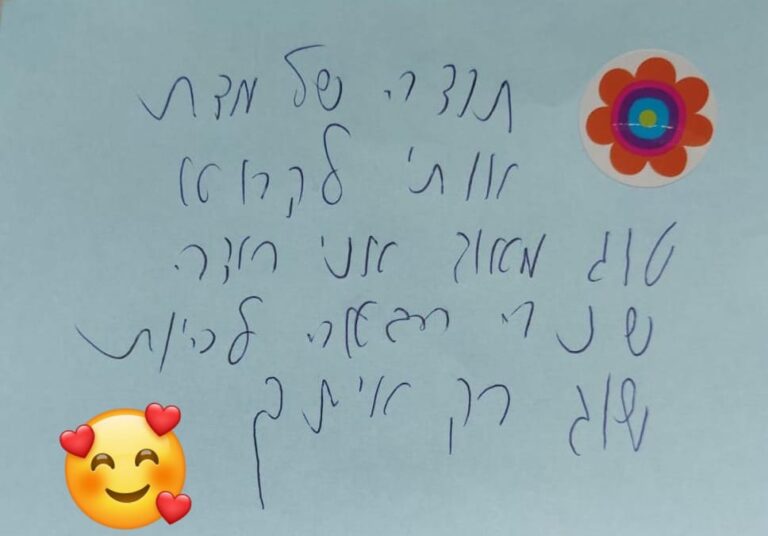 תודה שלמדת
אותי לקרוא
טוב מאוד אני רוצה
שנה הבאה להיות
שוב רק איתך